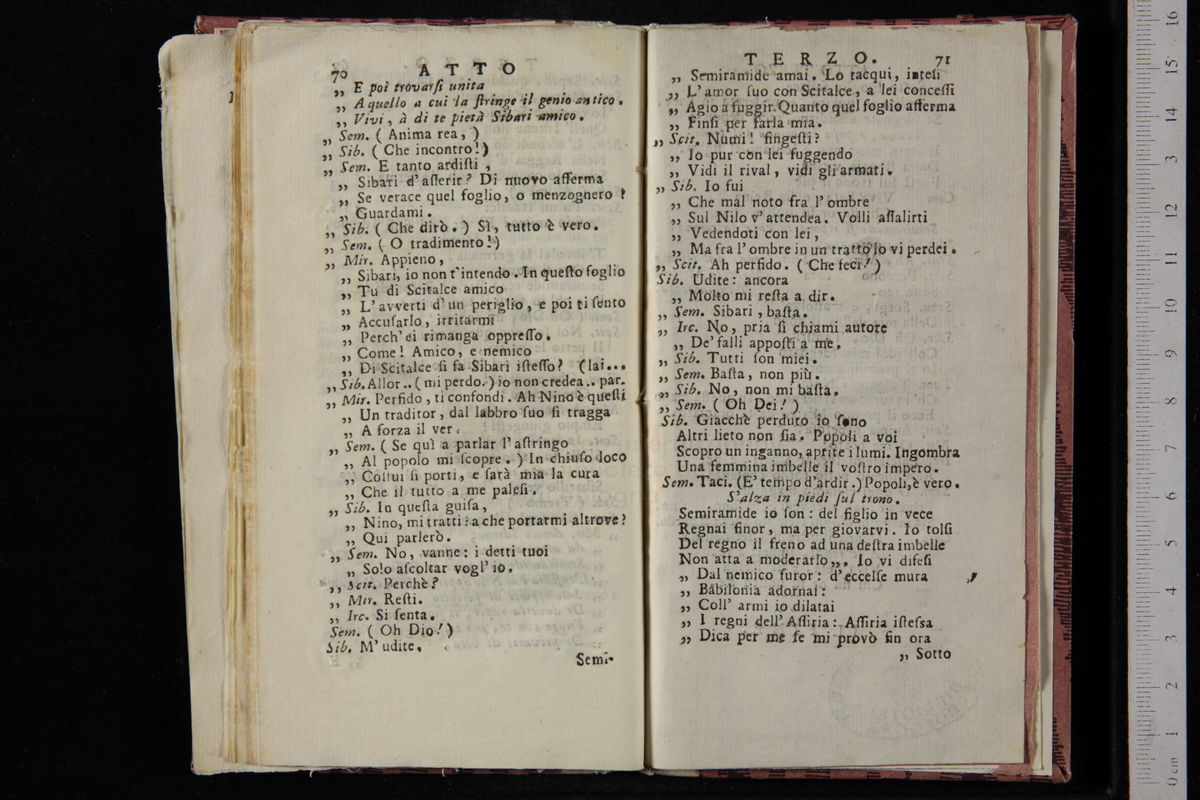 70 ATTO
„ E poi trovarſi unita
„ A quello a cui la ſtringe il genio antico.
„ Vivi, à di te pietà Sibari amico.
„ Sem. ( Anima rea, )
„ Sib. ( Che incontro! )
„ Sem. E tanto ardiſti ,
„ Sibari d'aſſerir? Di nuovo afferma
„ Se verace quel foglio, o menzognero ?
„ Guardami.
„ Sib. ( Che dirò. ) Sì, tutto è vero.
„ Sem. ( O tradimento! )
„ Mir. Appieno,
„ Sibari, io non t'intendo. In queſto foglio
„ Tu di Scitalce amico
„ L'avverti d'un periglio, e poi ti ſento
„ Accuſarlo, irritarmi
„ Perch'ei rimanga oppreſſo.
„ Come! Amico, e nemico
„ Di Scitalce ſi fa Sibari iſteſſo? (lai...
„ Sib. Allor.. ( mi perdo. ) io non credea.. par-
„ Mir. Perfido, ti confondi. Ah Nino è queſti
„ Un traditor, dal labbro ſuo ſi tragga
„ A forza il ver.
„ Sem. ( Se quì a parlar l'aſtringo
„ Al popolo mi ſcopre. ) In chiuſo loco
„ Coſtui ſi porti, e ſarà mia la cura
„ Che il tutto a me paleſi.
„ Sib. In queſta guiſa,
„ Nino, mi tratti? a che portarmi altrove?
„ Qui parlerò.
„ Sem. No, vanne: i detti tuoi
„ Solo aſcoltar vogl'io.
„ Scit. Perchè?
„ Mir. Reſti.
„ Irc. Si ſenta.
Sem. ( Oh Dio! )
Sib. M'udite.
Semi-
TERZO. 71
„ Semiramide amai. Lo tacqui, inteſi
„ L'amor ſuo con Scitalce, a lei conceſſi
„ Agio a fuggir. Quanto quel foglio afferma
„ Finſi per farla mia.
„ Scit. Numi! fingeſti?
„ Io pur con lei fuggendo
„ Vidi il rival, vidi gli armati.
„ Sib. Io fui
„ Che mal noto fra l'ombre
„ Sul Nilo v'attendea. Volli aſſalirti
„ Vedendoti con lei,
„ Ma fra l'ombre in un tratto io vi perdei.
„ Scit. Ah perfido. ( Che feci! )
Sib. Udite: ancora
„ Molto mi reſta a dir.
„ Sem. Sibari, baſta.
„ Irc. No, pria ſi chiami autore
„ De' falli appoſti a me.
„ Sib. Tutti ſon miei.
„ Sem. Baſta, non più.
„ Sib. No, non mi baſta.
„ Sem. ( Oh Dei! )
Sib. Giacchè perduto io ſono
Altri lieto non ſia. Popoli a voi
Scopro un inganno, aprite i lumi. Ingombra
Una femmina imbelle il voſtro impero.
Sem. Taci. (E' tempo d'ardir.) Popoli, è vero.
S'alza in piedi ſul trono.
Semiramide io ſon: del figlio in vece
Regnai finor, ma per giovarvi. Io tolſi
Del regno il freno ad una deſtra imbelle
Non atta a moderarlo„. Io vi difeſi
„ Dal nemico furor: d'eccelſe mura
„ Babilonia adornai:
„ Coll' armi io dilatai
„ I regni dell'Aſſiria: Aſſiria iſteſsa
„ Dica per me ſe mi provò fin ora
„ Sotto
16
15
14
13
12
11
10
9
8
7
6
5
4
3
2
1
0 cm